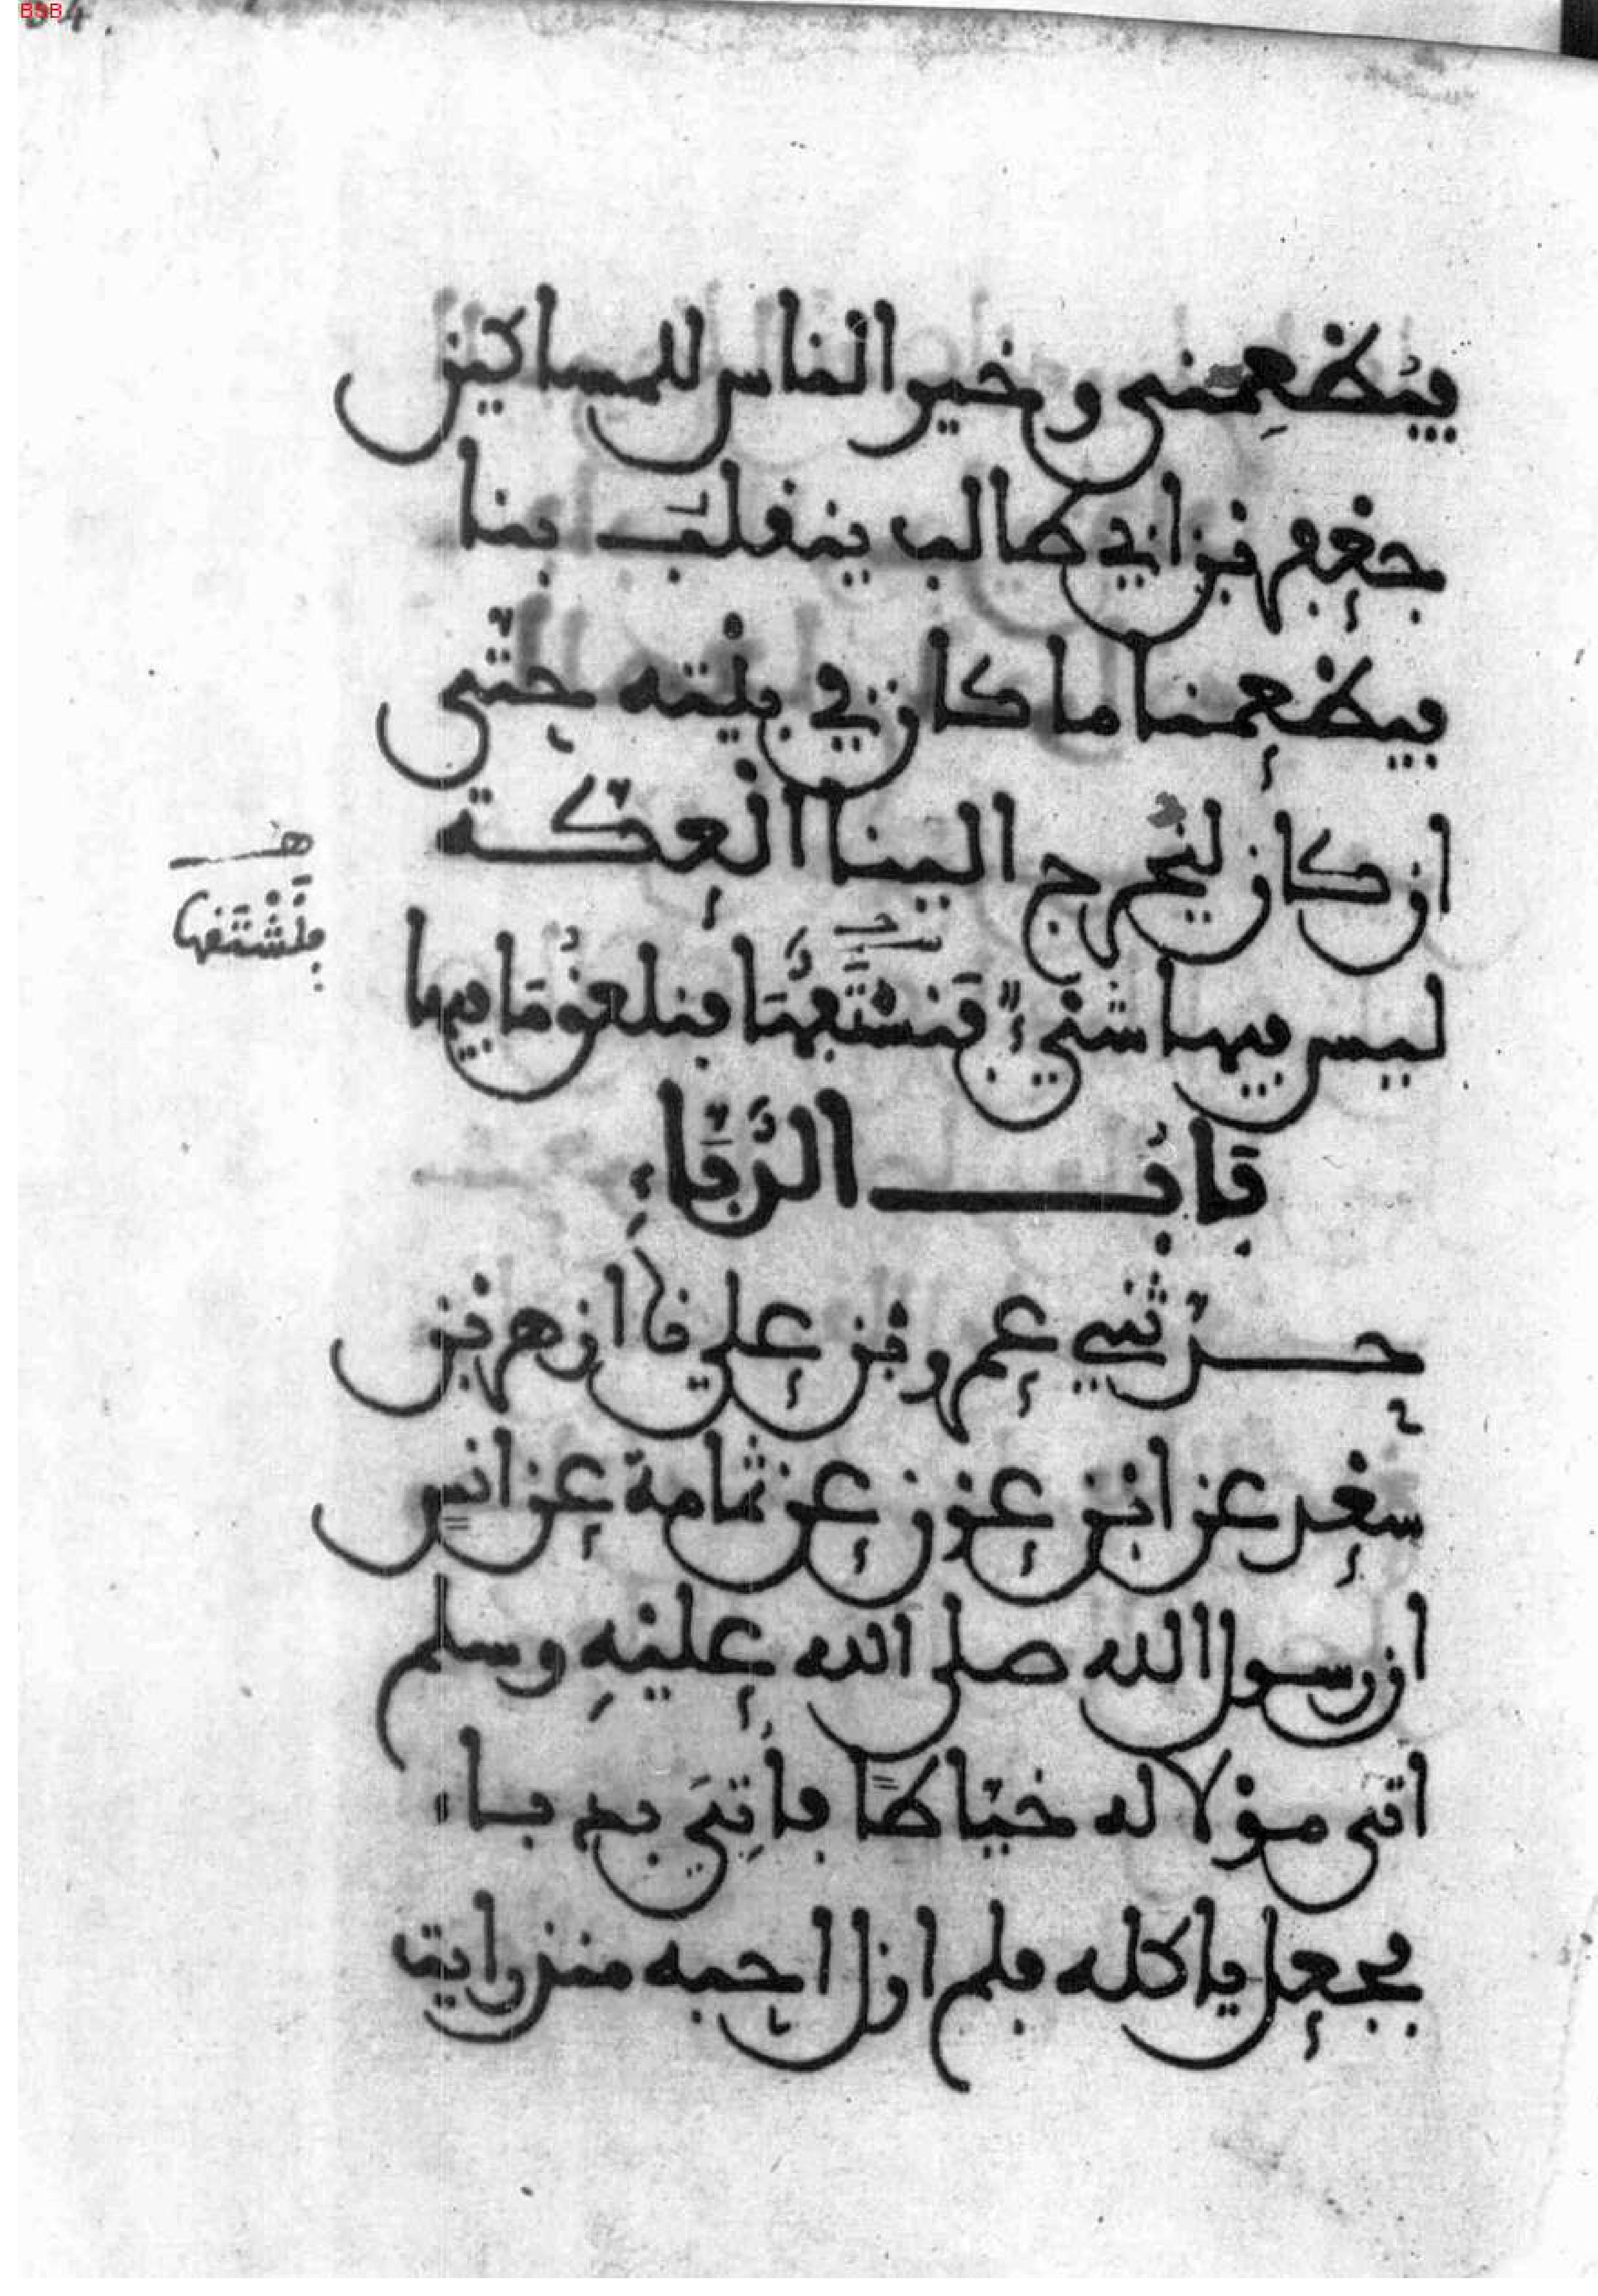 فيُطْعِمني وخير الناس للمساكين
جعفر بن ابي طالب ينقلبُ بنا
فيطْعِمنا ما كان في بيْته حتّى
ان كان ليُخرج الينا الْعكّة
ليس فيها شيْءٌ فنَشْتَفُّها فنلعقُ ما فيها
هـ
فنَشْتَفها
بابُ الدُّبَّاءِ
حدّثني عمرو بن علي نا ازهر بن
سعْد عن ابن عوْن عن ثمامة عن انسٍ
ان رسول الله صلى الله عليْهِ وسلم
اتى موْلا له خيّاطًا فأُتِيَ بدباء
فجعل ياكله فلم ازل احبه منذ رايت